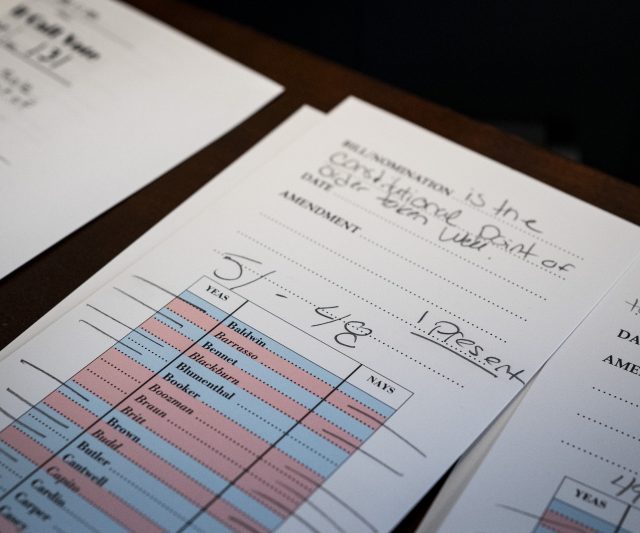 ll Call Vote
131
BILL/NOMINATION is the
Constitutional Point of
Order taken Well.
DATE
AMENDMENT
51 - 48
1 Present
YEAS
NAYS
Baldwin
Barrasso
Bennet
Blackburn
Blumenthal
Booker
Boozman
Braun
Britt
Brown
Budd
Butler
Cantwell
Capito
Cardin
Carper
Casey
DA
AME
49
YEAS